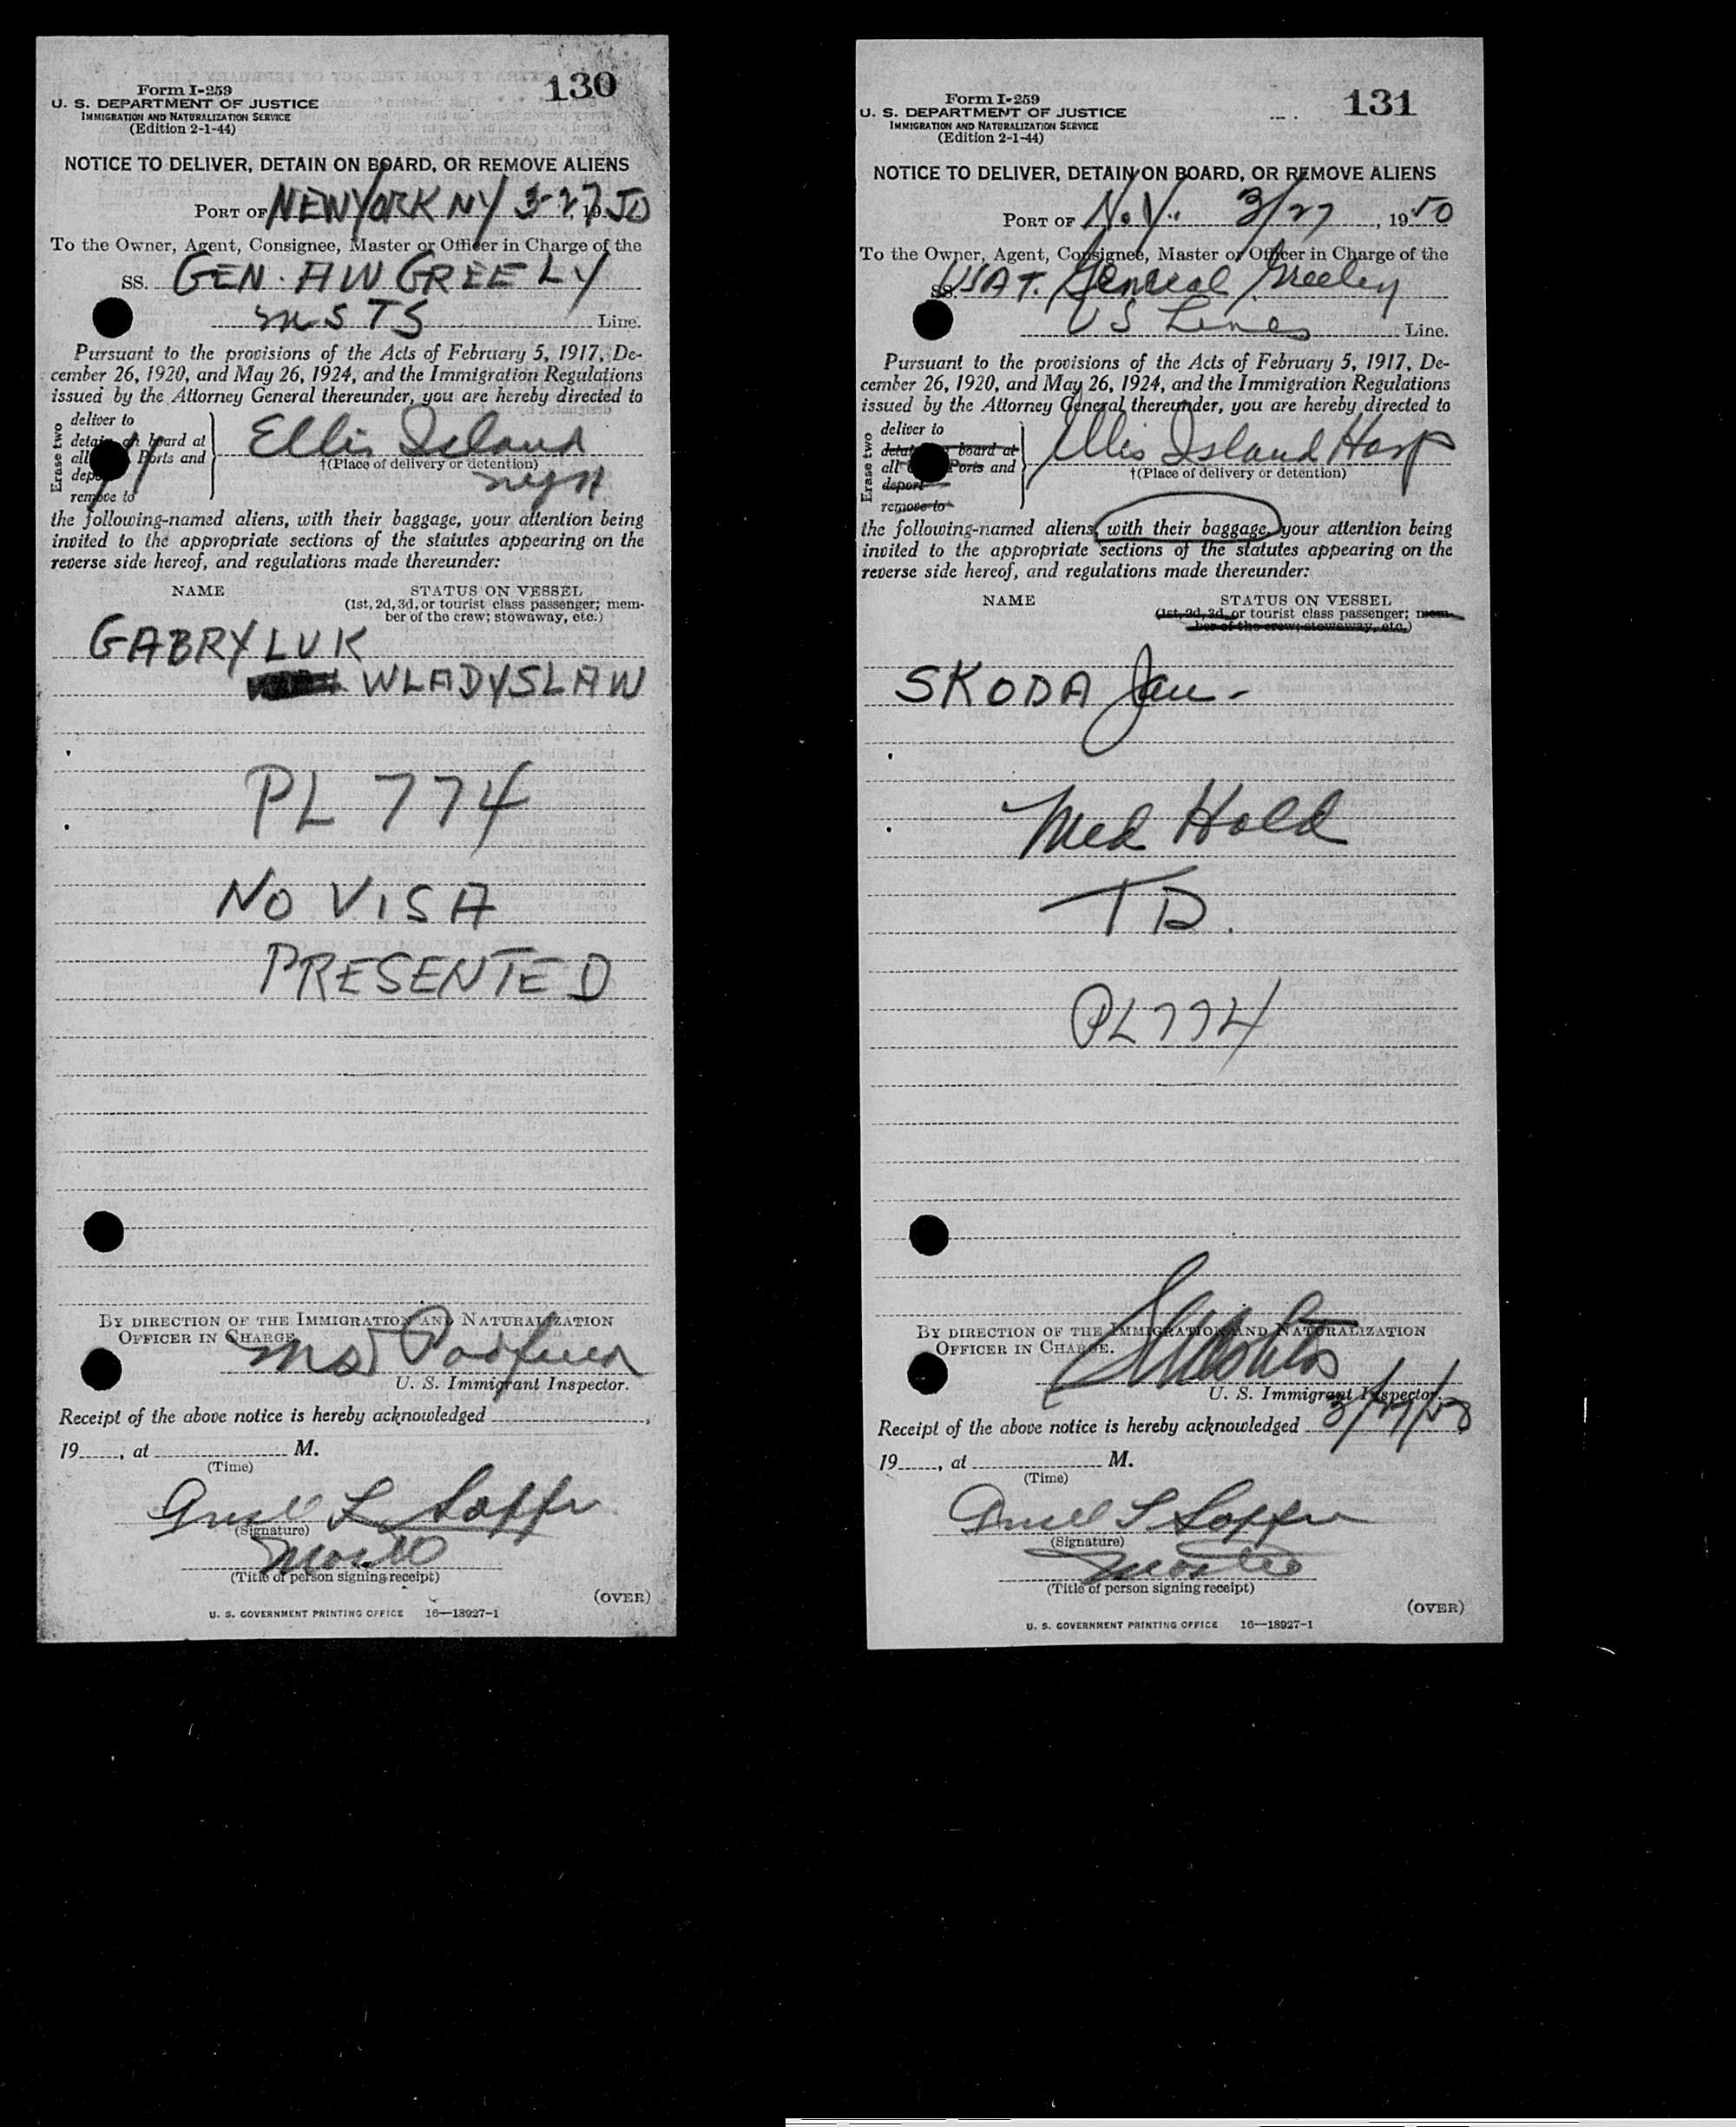 130
Form I-259
U. S. DEPARTMENT OF JUSTICE
IMMIGRATION AND NATURALIZATION SERVICE
(Edition 2-1-44)
NOTICE TO DELIVER, DETAIN ON BOARD, OR REMOVE ALIENS
PORT OF NEW YORK NY 3-27, 1950
To the Owner, Agent, Consignee, Master or Officer in Charge of the
SS. GEN. AW GREELY
MSTS Line.
Pursuant to the provisions of the Acts of February 5, 1917, De-
cember 26, 1920, and May 26, 1924, and the Immigration Regulations
issued by the Attorney General thereunder, you are hereby directed to
Erase two
deliver to
detain on board at
all Ports and
remove to
Ellis Island
†(Place of delivery or detention)
the following-named aliens, with their baggage, your attention being
invited to the appropriate sections of the statutes appearing on the
reverse side hereof, and regulations made thereunder:
NAME STATUS ON VESSEL
(1st, 2d, 3d, or tourist class passenger; mem-
ber of the crew; stowaway, etc.)
GABRYLUK
WLADYSLAW
PL 774
NO VISA
PRESENTED
BY DIRECTION OF THE IMMIGRATION AND NATURALIZATION
OFFICER IN CHARGE.
U. S. Immigrant Inspector.
Receipt of the above notice is hereby acknowledged
19, at M.
(Time)
(Signature)
(Title of person signing receipt)
(OVER)
U. S. GOVERNMENT PRINTING OFFICE 16—18927-1
131
Form I-259
U. S. DEPARTMENT OF JUSTICE
IMMIGRATION AND NATURALIZATION SERVICE
(Edition 2-1-44)
NOTICE TO DELIVER, DETAIN ON BOARD, OR REMOVE ALIENS
PORT OF N.Y. 3/27, 1950
To the Owner, Agent, Consignee, Master or Officer in Charge of the
SS. USAT. General Greeley
US Lines Line.
Pursuant to the provisions of the Acts of February 5, 1917, De-
cember 26, 1920, and May 26, 1924, and the Immigration Regulations
issued by the Attorney General thereunder, you are hereby directed to
Erase two
deliver to
board at
all Ports and
deport
remove to
Ellis Island Hosp
†(Place of delivery or detention)
the following-named aliens, with their baggage, your attention being
invited to the appropriate sections of the statutes appearing on the
reverse side hereof, and regulations made thereunder:
NAME STATUS ON VESSEL
(1st, 2d, 3d, or tourist class passenger; mem-
ber of the crew; stowaway, etc.)
SKODA Jan -
Med Hold
TB.
PL774
BY DIRECTION OF THE IMMIGRATION AND NATURALIZATION
OFFICER IN CHARGE.
U. S. Immigrant Inspector.
Receipt of the above notice is hereby acknowledged 3/27/50
19, at M.
(Time)
(Signature)
(Title of person signing receipt)
(OVER)
U. S. GOVERNMENT PRINTING OFFICE 16—18927-1